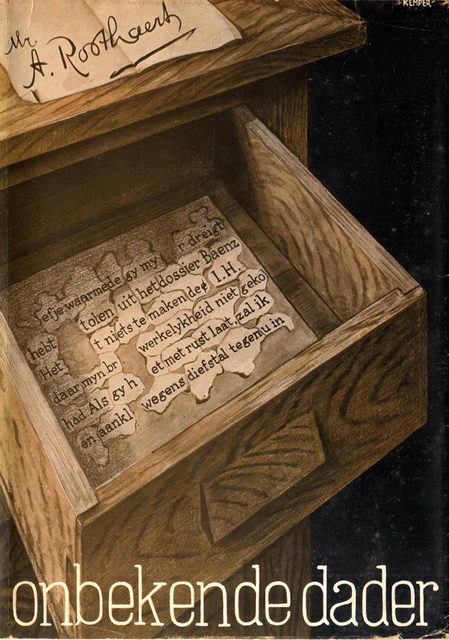 KEMPER
Mr
A. Roothaert
efje waarmede gy my r dreigt
hebt tolen uit het dossier Baenz
Het t niets te maken de I.H.
daar myn br werkelykheid niet geko
had Als gy h et met rust laat, zal ik
en aankl wegens diefstal tegen u in
onbekende dader